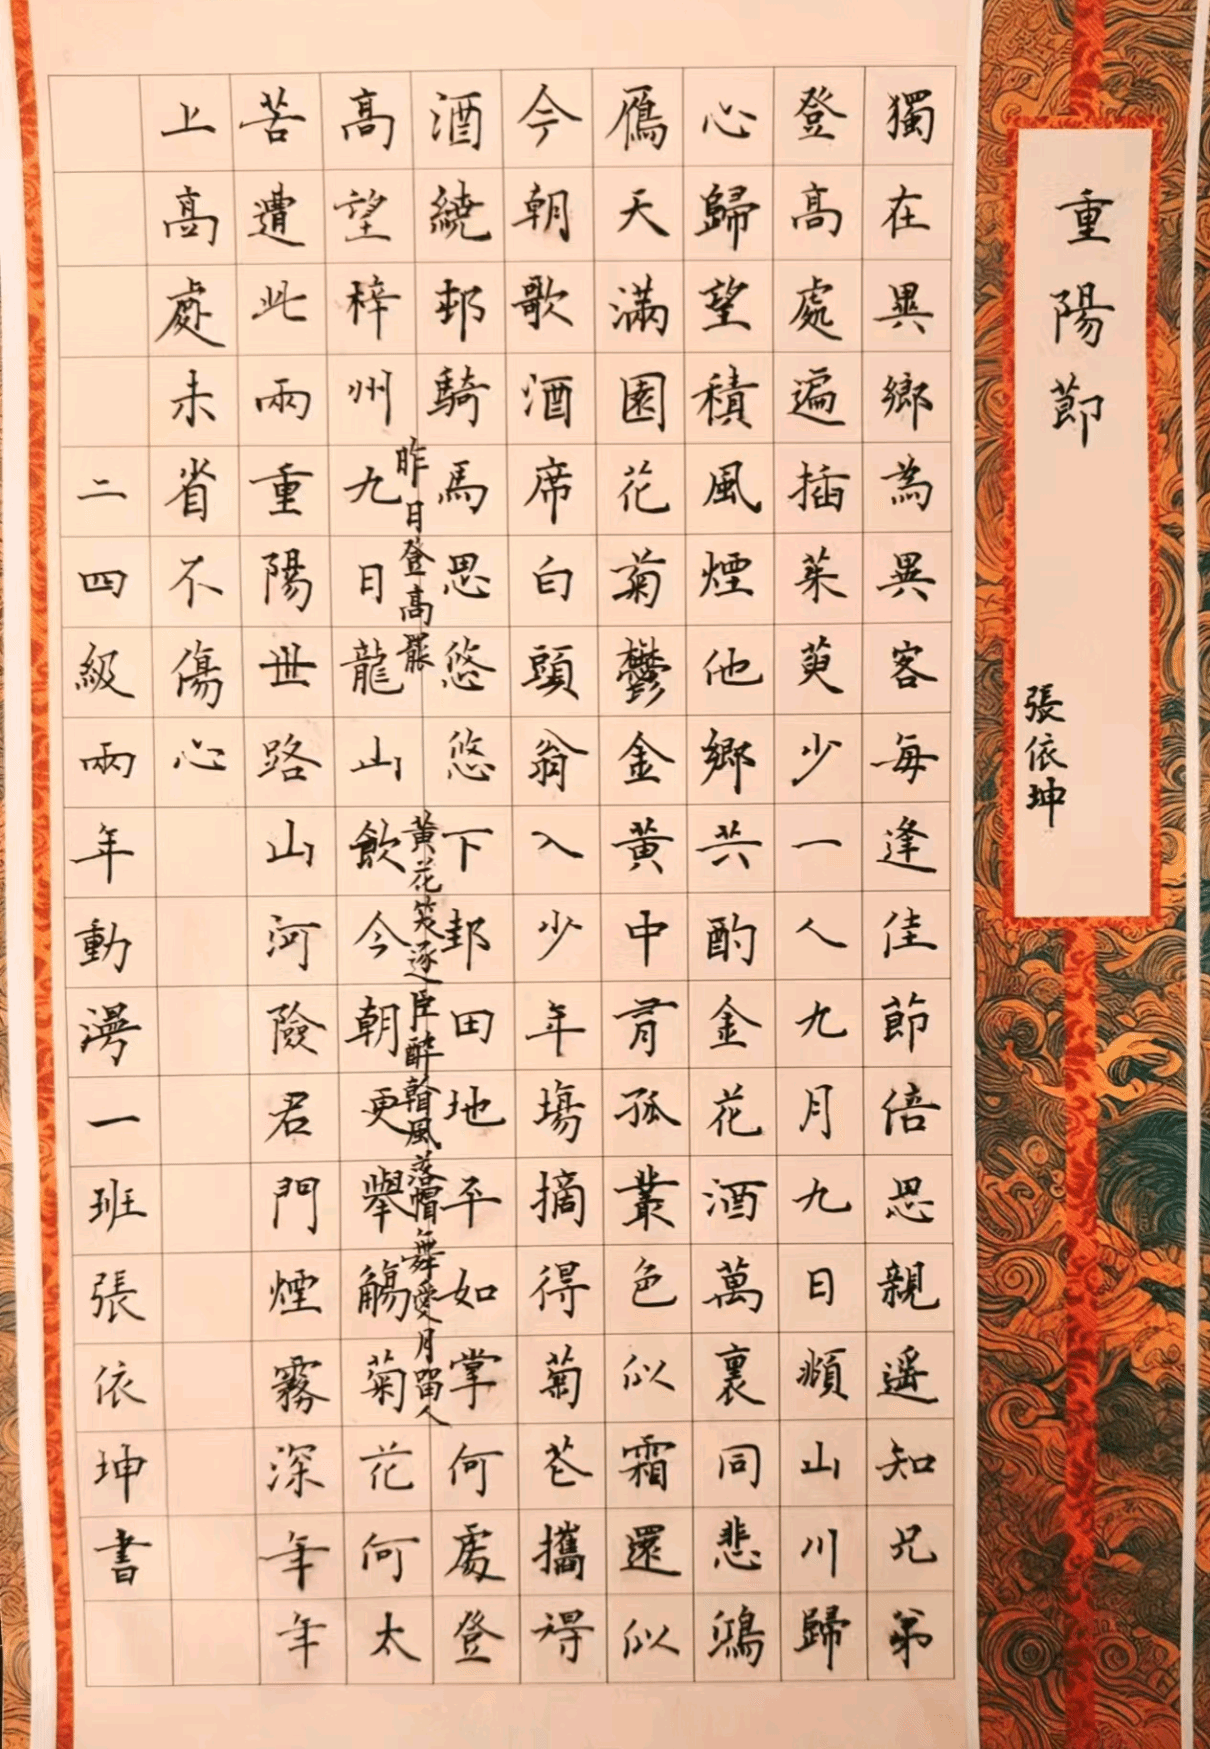 重陽節
張依坤
獨在異鄉為異客每逢佳節倍思親遥知兄弟
登高處遍插茱萸少一人九月九日頫山川歸
心歸望積風煙他鄉共酌金花酒萬裏同悲鴻
鴈天滿園花菊鬱金黃中有孤叢色似霜還似
今朝歌酒席白頭翁入少年場摘得菊花攜得
酒繞邨騎馬思悠悠下邨田地平如掌何處登
昨日登高罷
黃花笑逐臣醉看風落帽舞愛月留人
高望梓州九日龍山飲今朝更舉觴菊花何太
苦遭此兩重陽世路山河險君門煙霧深年年
上高處未省不傷心
二四級兩年動漫一班張依坤書